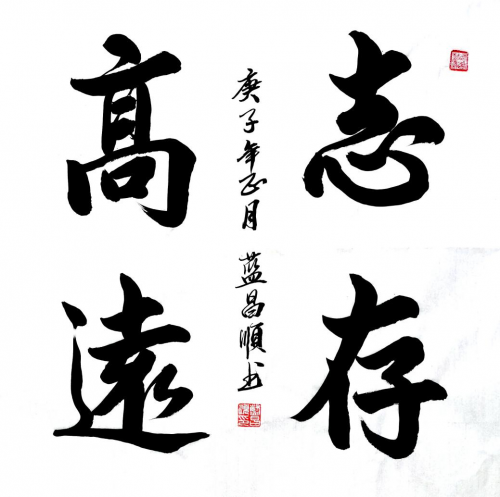 志存
高遠
庚子年正月
藍昌順书